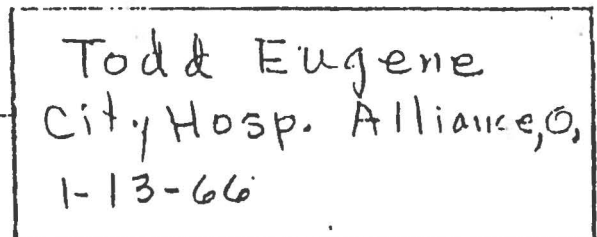 Todd Eugene
City Hosp. Alliance, O.
1-13-66